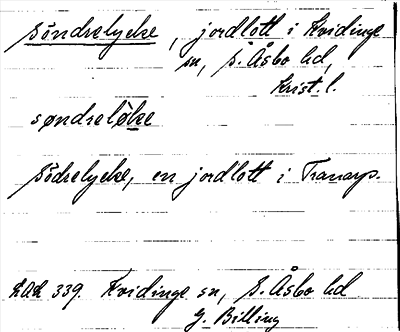 Söndrelycke, jordlott i Kvidinge
sn, S. Åsbo hd,
Krist. l.
søndreløke
Södrelycke, en jordlott i Tranarp.
LAL 339. Kvidinge sn, S. Åsbo hd
G. Billing